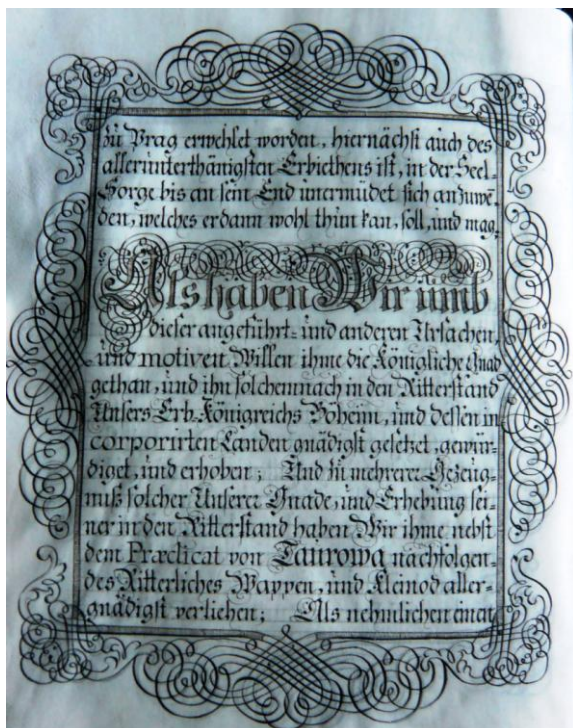 zu Prag erwehlet worden, hiernächst auch des
allerunterthänigsten Erbiethens ist, in der Seel-
Sorge bis an sein End unermüdet sich anzuwe-
den, welches er dann wohl thun kan, soll, und mag,
Als haben Wir umb
dieser angeführt- und anderen Ursachen,
und motiven Willen ihme die Königliche Gnad
gethan, und ihn solchemnach in den Ritterstand
Unsers Erb-Königreichs Böheim, und dessen in
corporirten Landen gnädigst gesetzet, gewür-
diget, und erhoben; Und zu mehrerer Gezeug-
nuß solcher Unserer Gnade, und Erhebung sei-
ner in den Ritterstand haben Wir ihme nebst
dem Prædicat von Taurowa nachfolgen-
des Ritterliches Wappen, und Kleinod aller-
gnädigst verliehen; Als nehmlichen einen